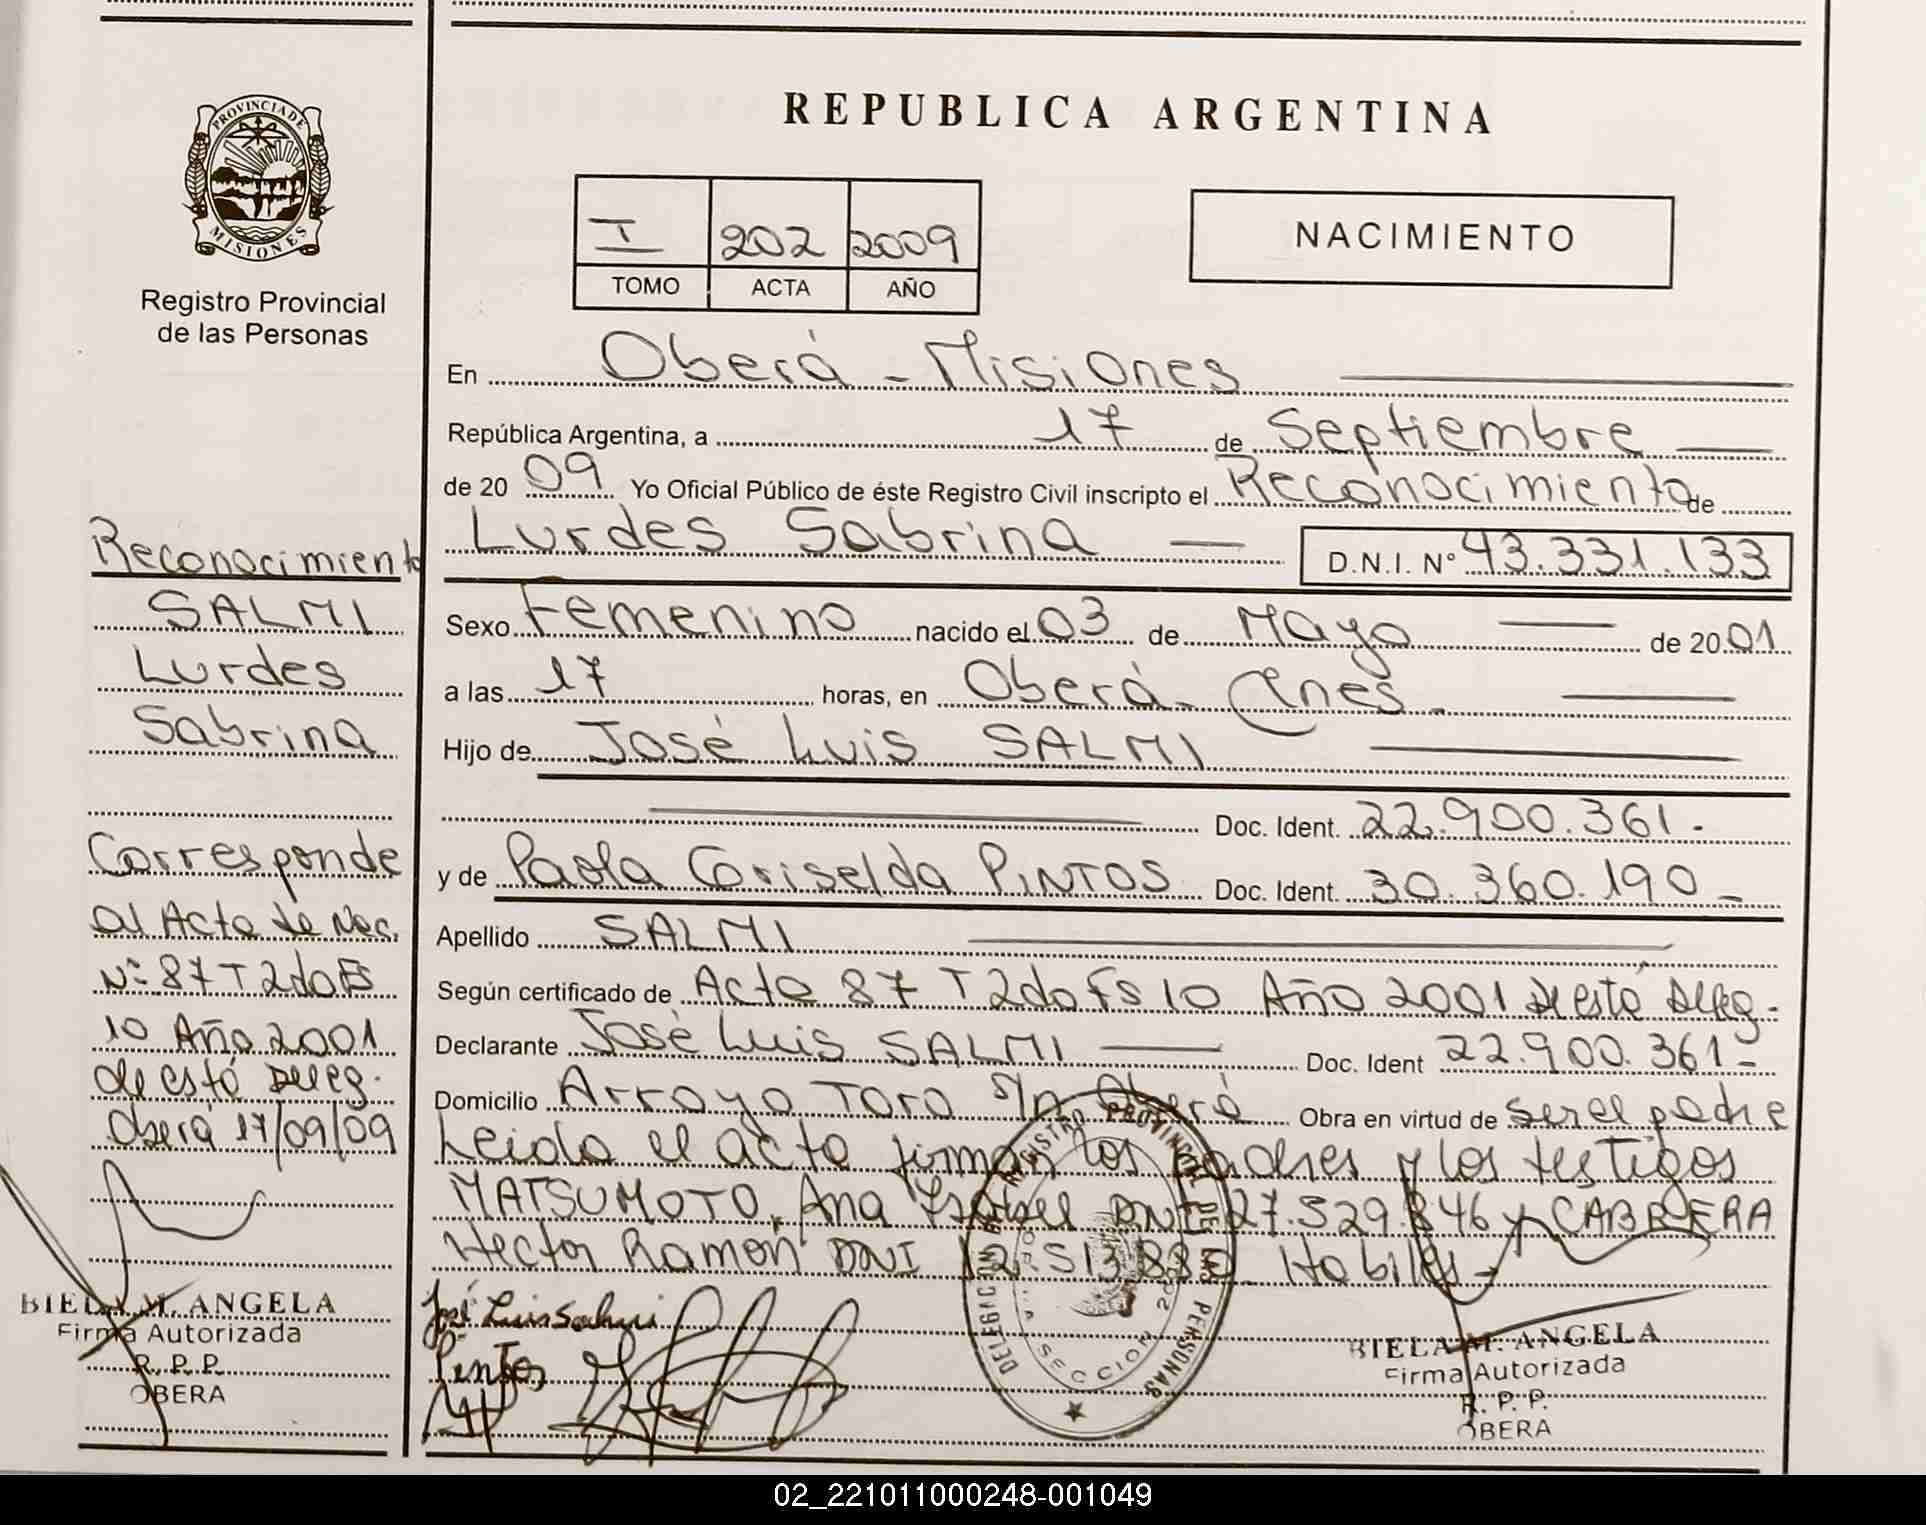 PROVINCIA DE
MISIONES
Registro Provincial
de las Personas
Reconocimiento
SALMI
Lurdes
Sabrina
Corresponde
al Acta de Nac.
Nº 87 T 2do Fs
10 Año 2001
de está Deleg.
Oberá 17/09/09
BIELA M. ANGELA
Firma Autorizada
R. P. P.
OBERA
REPUBLICA ARGENTINA
I 202 2009
TOMO ACTA AÑO
NACIMIENTO
En Oberá - Misiones
República Argentina, a 17 de Septiembre
de 20 09 Yo Oficial Público de éste Registro Civil inscripto el Reconocimiento de
Lurdes Sabrina D.N.I. N° 43.331.133
Sexo Femenino nacido el 03 de Mayo de 2001
a las 17 horas, en Oberá -
Hijo de José Luis SALMI
Doc. Ident. 22.900.361.
y de Paola Griselda PINTOS Doc. Ident. 30.360.190 -
Apellido SALMI
Según certificado de Acta 87 T 2do Fs 10 Año 2001 de está Deleg.
Declarante José Luis SALMI Doc. Ident 22.900.361 -
Domicilio Arroyo Toro S/n Oberá Obra en virtud de ser el padre
Leida el acta firman los padres y los testigos
MATSUMOTO, Ana Ysabel DNI 27.529.846 y CABRERA
Hector Ramón DNI Habiles -
José Luis Salmi
Pintos
DELEGACION REGISTRO PROVINCIAL DE LAS PERSONAS
SECCION 2
BIELA M. ANGELA
Firma Autorizada
R. P. P.
OBERA
02_221011000248-001049